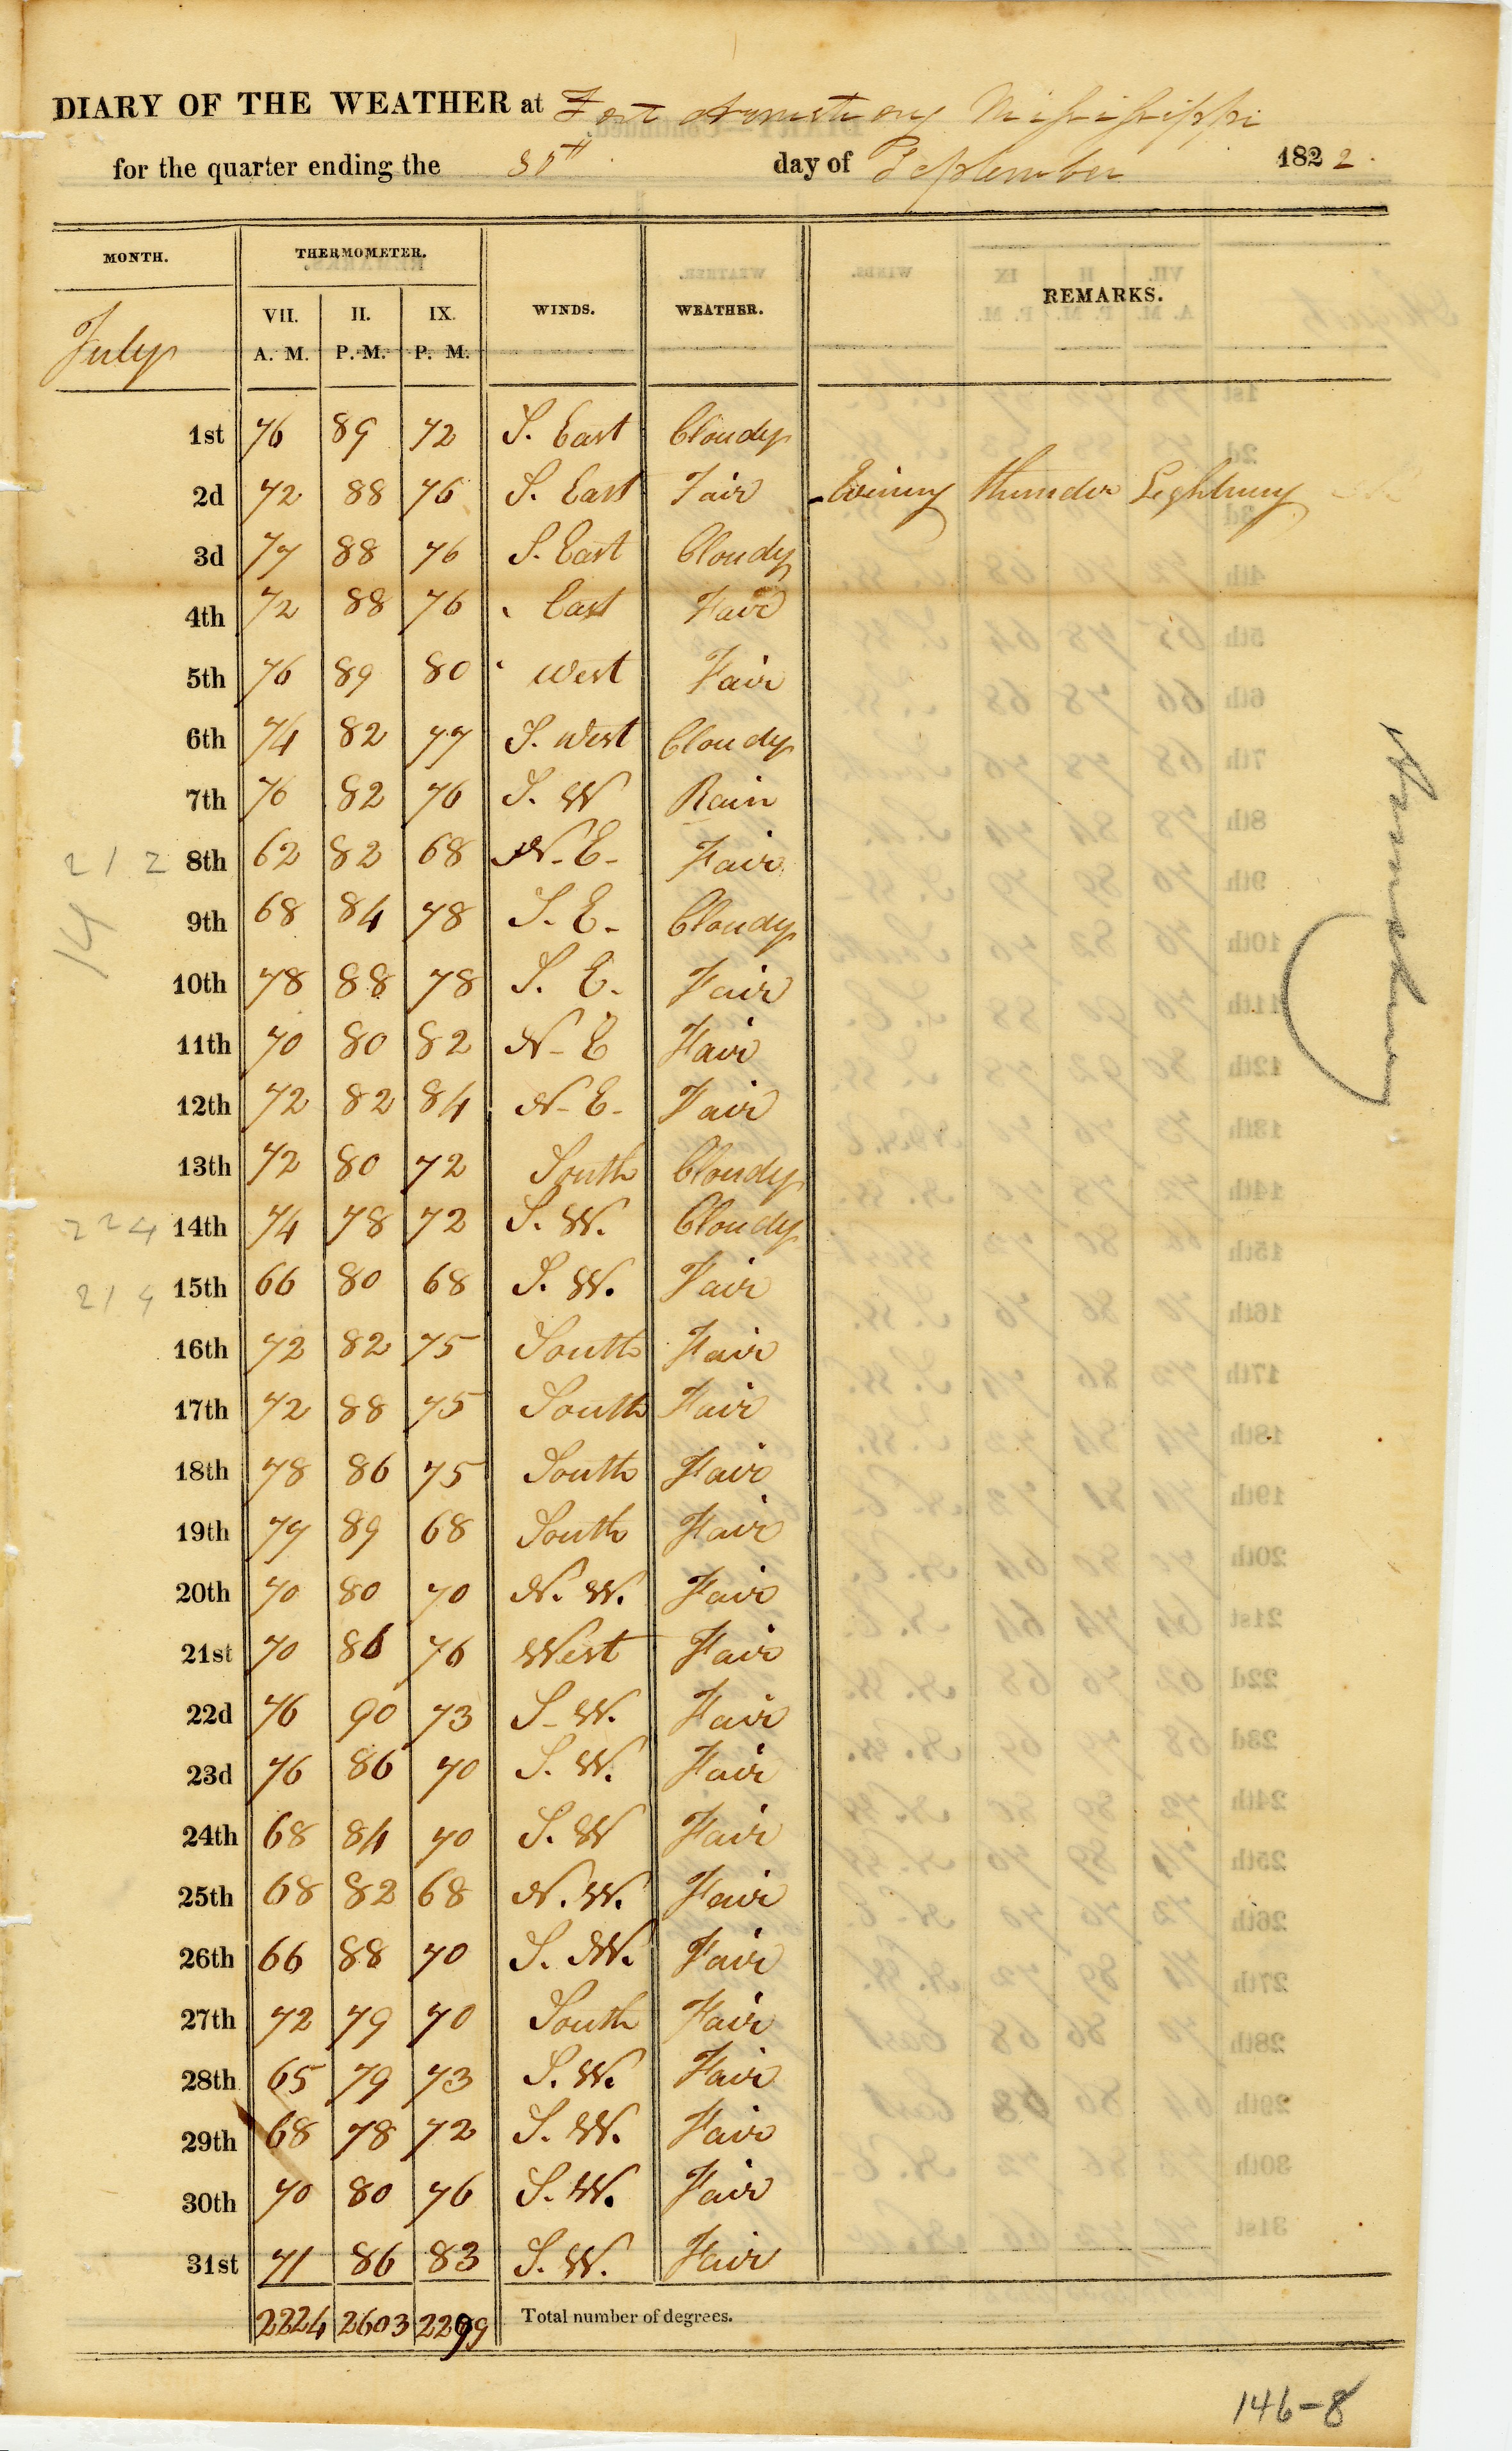 DIARY OF THE WEATHER at Fort Armstrong Mississippi
for the quarter ending the 30th day of September 1822.
MONTH. THERMOMETER. WINDS. WEATHER. REMARKS.
July VII. A. M. II. P. M. IX. P. M.
1st 76 89 72 S. East Cloudy
2d 72 88 76 S. East Fair Evening thunder Lightning
3d 77 88 76 S. East Cloudy
4th 72 88 76 East Fair
5th 76 89 80 West Fair
6th 74 82 77 S. West Cloudy
7th 76 82 76 S. W Rain
212 8th 62 82 68 N. E. Fair
14
9th 68 84 78 S. E. Cloudy
10th 78 88 78 S. E. Fair
11th 70 80 82 N. E Fair
12th 72 82 84 N. E. Fair
13th 72 80 72 South Cloudy
224 14th 74 78 72 S. W. Cloudy
214 15th 66 80 68 S. W. Fair
16th 72 82 75 South Fair
17th 72 88 75 South Fair
18th 78 86 75 South Fair
19th 77 89 68 South Fair
20th 70 80 70 N. W. Fair
21st 70 86 76 West Fair
22d 76 90 73 S. W. Fair
23d 76 86 70 S. W. Fair
24th 68 84 70 S. W Fair
25th 68 82 68 N. W. Fair
26th 66 88 70 S. W. Fair
27th 72 79 70 South Fair
28th 65 79 73 S. W. Fair
29th 68 78 72 S. W. Fair
30th 70 80 76 S. W. Fair
31st 71 86 83 S. W. Fair
2224 2603 2299 Total number of degrees.
146-8